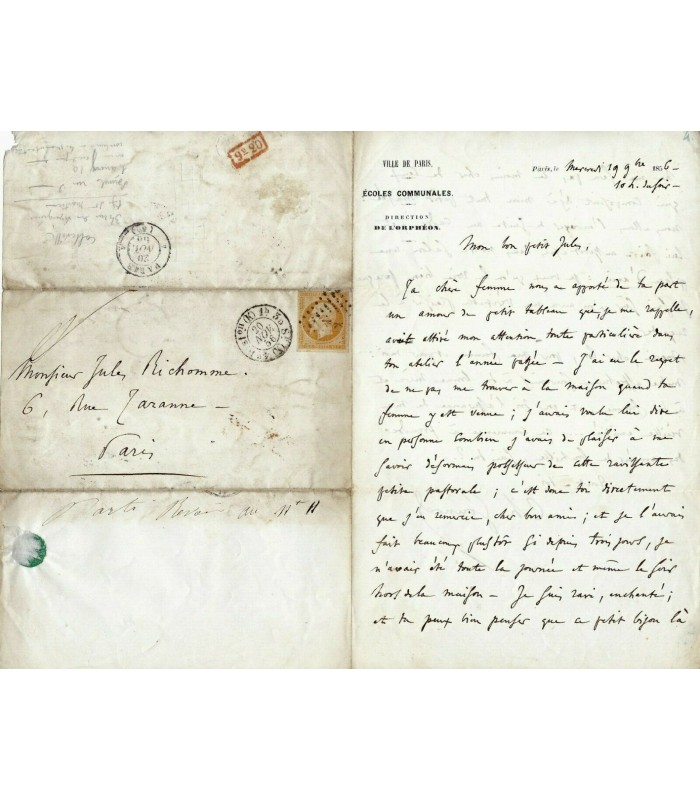 PARIS
20
NOV.
56
20
NOV.
56
Monsieur Jules Richomme.
6, Rue Taranne —
Paris
Parti
au n°
VILLE DE PARIS.
ÉCOLES COMMUNALES.
DIRECTION
DE L'ORPHÉON.
Paris, le Mercredi 19 9bre 1856 —
10 h. du soir —
Mon bon petit Jules,
Ta chère femme nous a apporté de ta part
un amour de petit tableau qui, je me rappelle,
avait attiré mon attention toute particulière dans
ton atelier l'année passée — J'ai eu le regret
de ne pas me trouver à la maison quand ta
femme y est venue ; j'aurais voulu lui dire
en personne combien j'avais de plaisir à me
savoir désormais possesseur de cette ravissante
petite pastorale ; c'est donc toi directement
que j'en remercie, cher bon ami ; et je l'aurais
fait beaucoup plustôt si depuis trois jours, je
n'avais été toute la journée et même le soir
hors de la maison — Je suis ravi, enchanté ;
et tu peux bien penser que ce petit bijou là